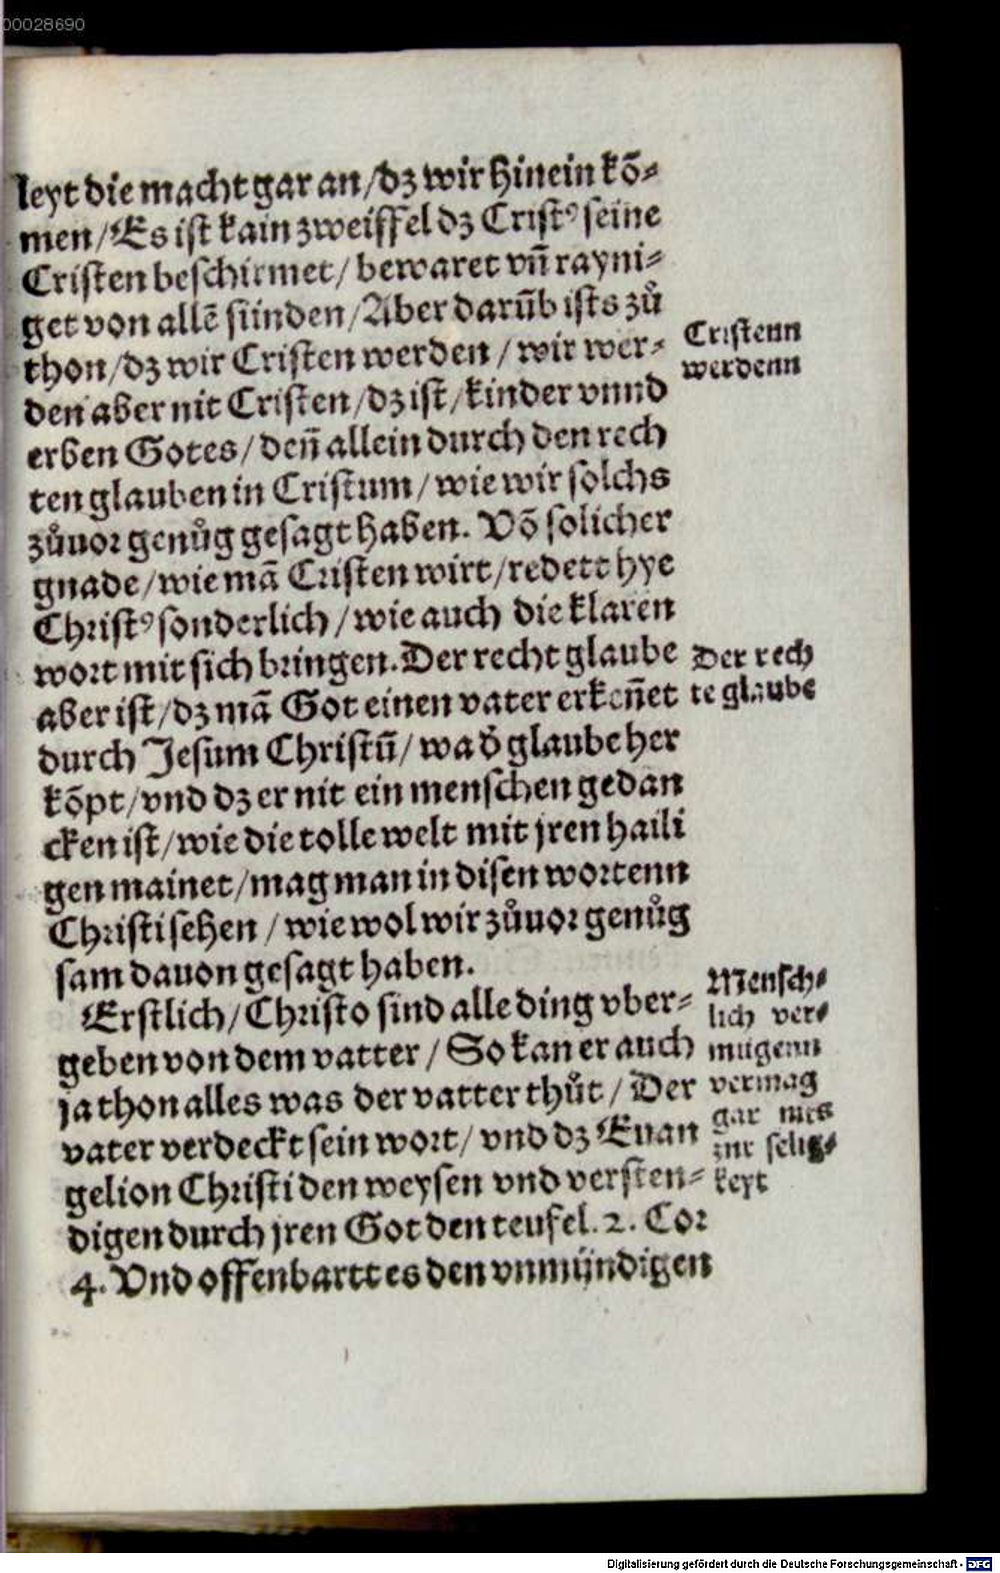 00028690
leyt die macht gar an/dz wir hinein kõ⸗
men/Es ist kain zweiffel dz Cristꝰ seine
Cristen beschirmet/bewaret vñ rayni⸗
get von allẽ sünden/Aber darũb ists zů
thon/dz wir Cristen werden/wir wer⸗
den aber nit Cristen/dz ist/kinder vnnd
erben Gotes/deñ allein durch den rech
ten glauben in Cristum/wie wir solchs
zůuor genůg gesagt haben. Võ solicher
gnade/wie mã Cristen wirt/redett hye
Christꝰ sonderlich/wie auch die klaren
wort mit sich bringen. Der recht glaube
aber ist/dz mã Got einen vater erkeñet
durch Jesum Christũ/wa d̕ glaube her
kõpt/vnd dz er nit ein menschen gedan
cken ist/wie die tolle welt mit jren haili
gen mainet/mag man in disen wortenn
Christi sehen/wie wol wir zůuor genůg
sam dauon gesagt haben.
Erstlich/Christo sind alle ding vber⸗
geben von dem vatter/So kan er auch
ja thon alles was der vatter thůt/Der
vater verdeckt sein wort/vnd dz Euan
gelion Christi den weysen vnd versten⸗
digen durch jren Got den teufel. 2. Cor
4. Vnd offenbartt es den vnmündigen
Cristenn
werdenn
Der rech
te glaube
Mensch⸗
lich ver⸗
mügenn
vermag
gar nits
zur selig⸗
keyt
Digitalisierung gefördert durch die Deutsche Forschungsgemeinschaft - DFG